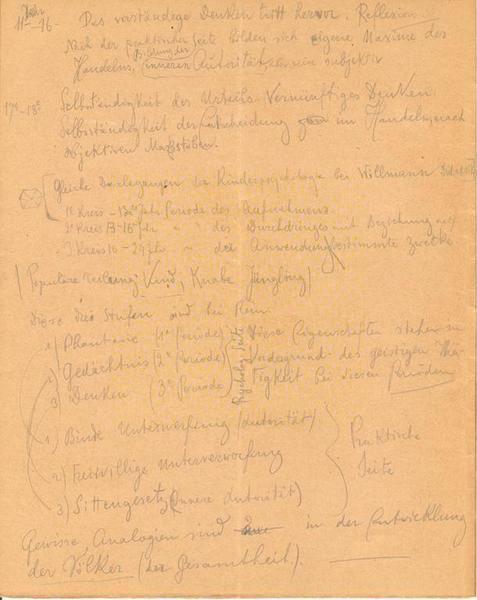 11-16 Jahr Das verständige Denken tritt hervor. Reflexion.
Nach der praktischen Seite bilden sich eigene Maxime des
Bildung der
Handelns, inneren Autorität, subjektiv
17-18 Selbständigkeit des Urteils. Vernünftiges Denken.
Selbständigkeit der Entscheidung im Handeln, nach
objektiven Massstäben.
Gleiche Darlegungen der Kinderpsychologie bei Willmann
1r Kreis - Jahr Periode des Aufnehmens
2r Kreis 13-16 Jhr " " des Durchdringens mit Beziehung auf
3 Kreis 16- Jhr " der Anwendung bestimmte Zwecke
(Populäre Kind, Knabe Jüngling)
Diese drei Stufen sind bei Rein
1) Phantasie (1e Periode) Diese Eigenschaften stehen im
2) Gedächtnis (2e Periode) Vordergrund des geistigen Thä-
3) Denken (3e Periode) tigkeit bei diesen Perioden
Psycholog. Seite
1) Blinde Unterwerfung (Autorität)
2) Freiwillige Unterwerfung
3) Sittengesetz (innere Autorität)
Praktische
Seite
Gewisse Analogien sind in der Entwicklung
der Völker (der Gesamtheit).